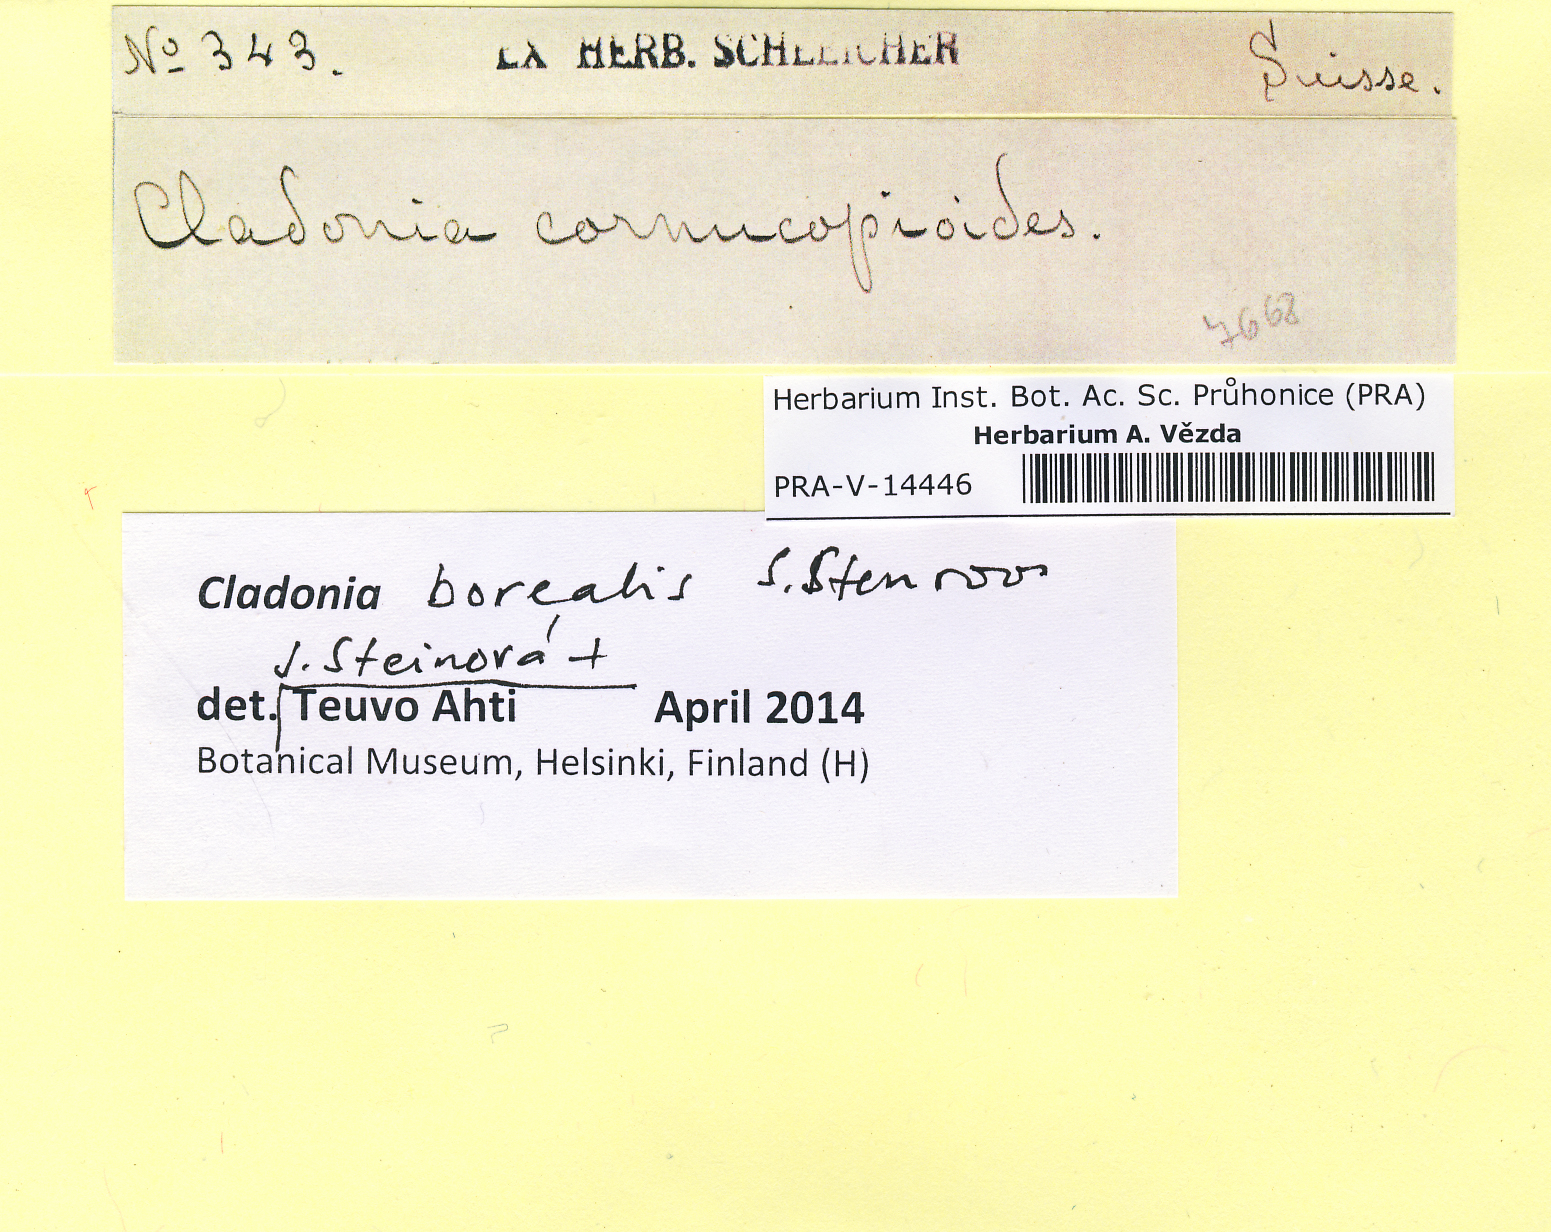 Nº 343. EX HERB. SCHLEICHER Suisse.
Cladonia cornucopioides.
7668
Herbarium Inst. Bot. Ac. Sc. Průhonice (PRA)
Herbarium A. Vězda
PRA-V-14446
Cladonia borealis S. Stenroos
J. Steinová +
det. Teuvo Ahti April 2014
Botanical Museum, Helsinki, Finland (H)